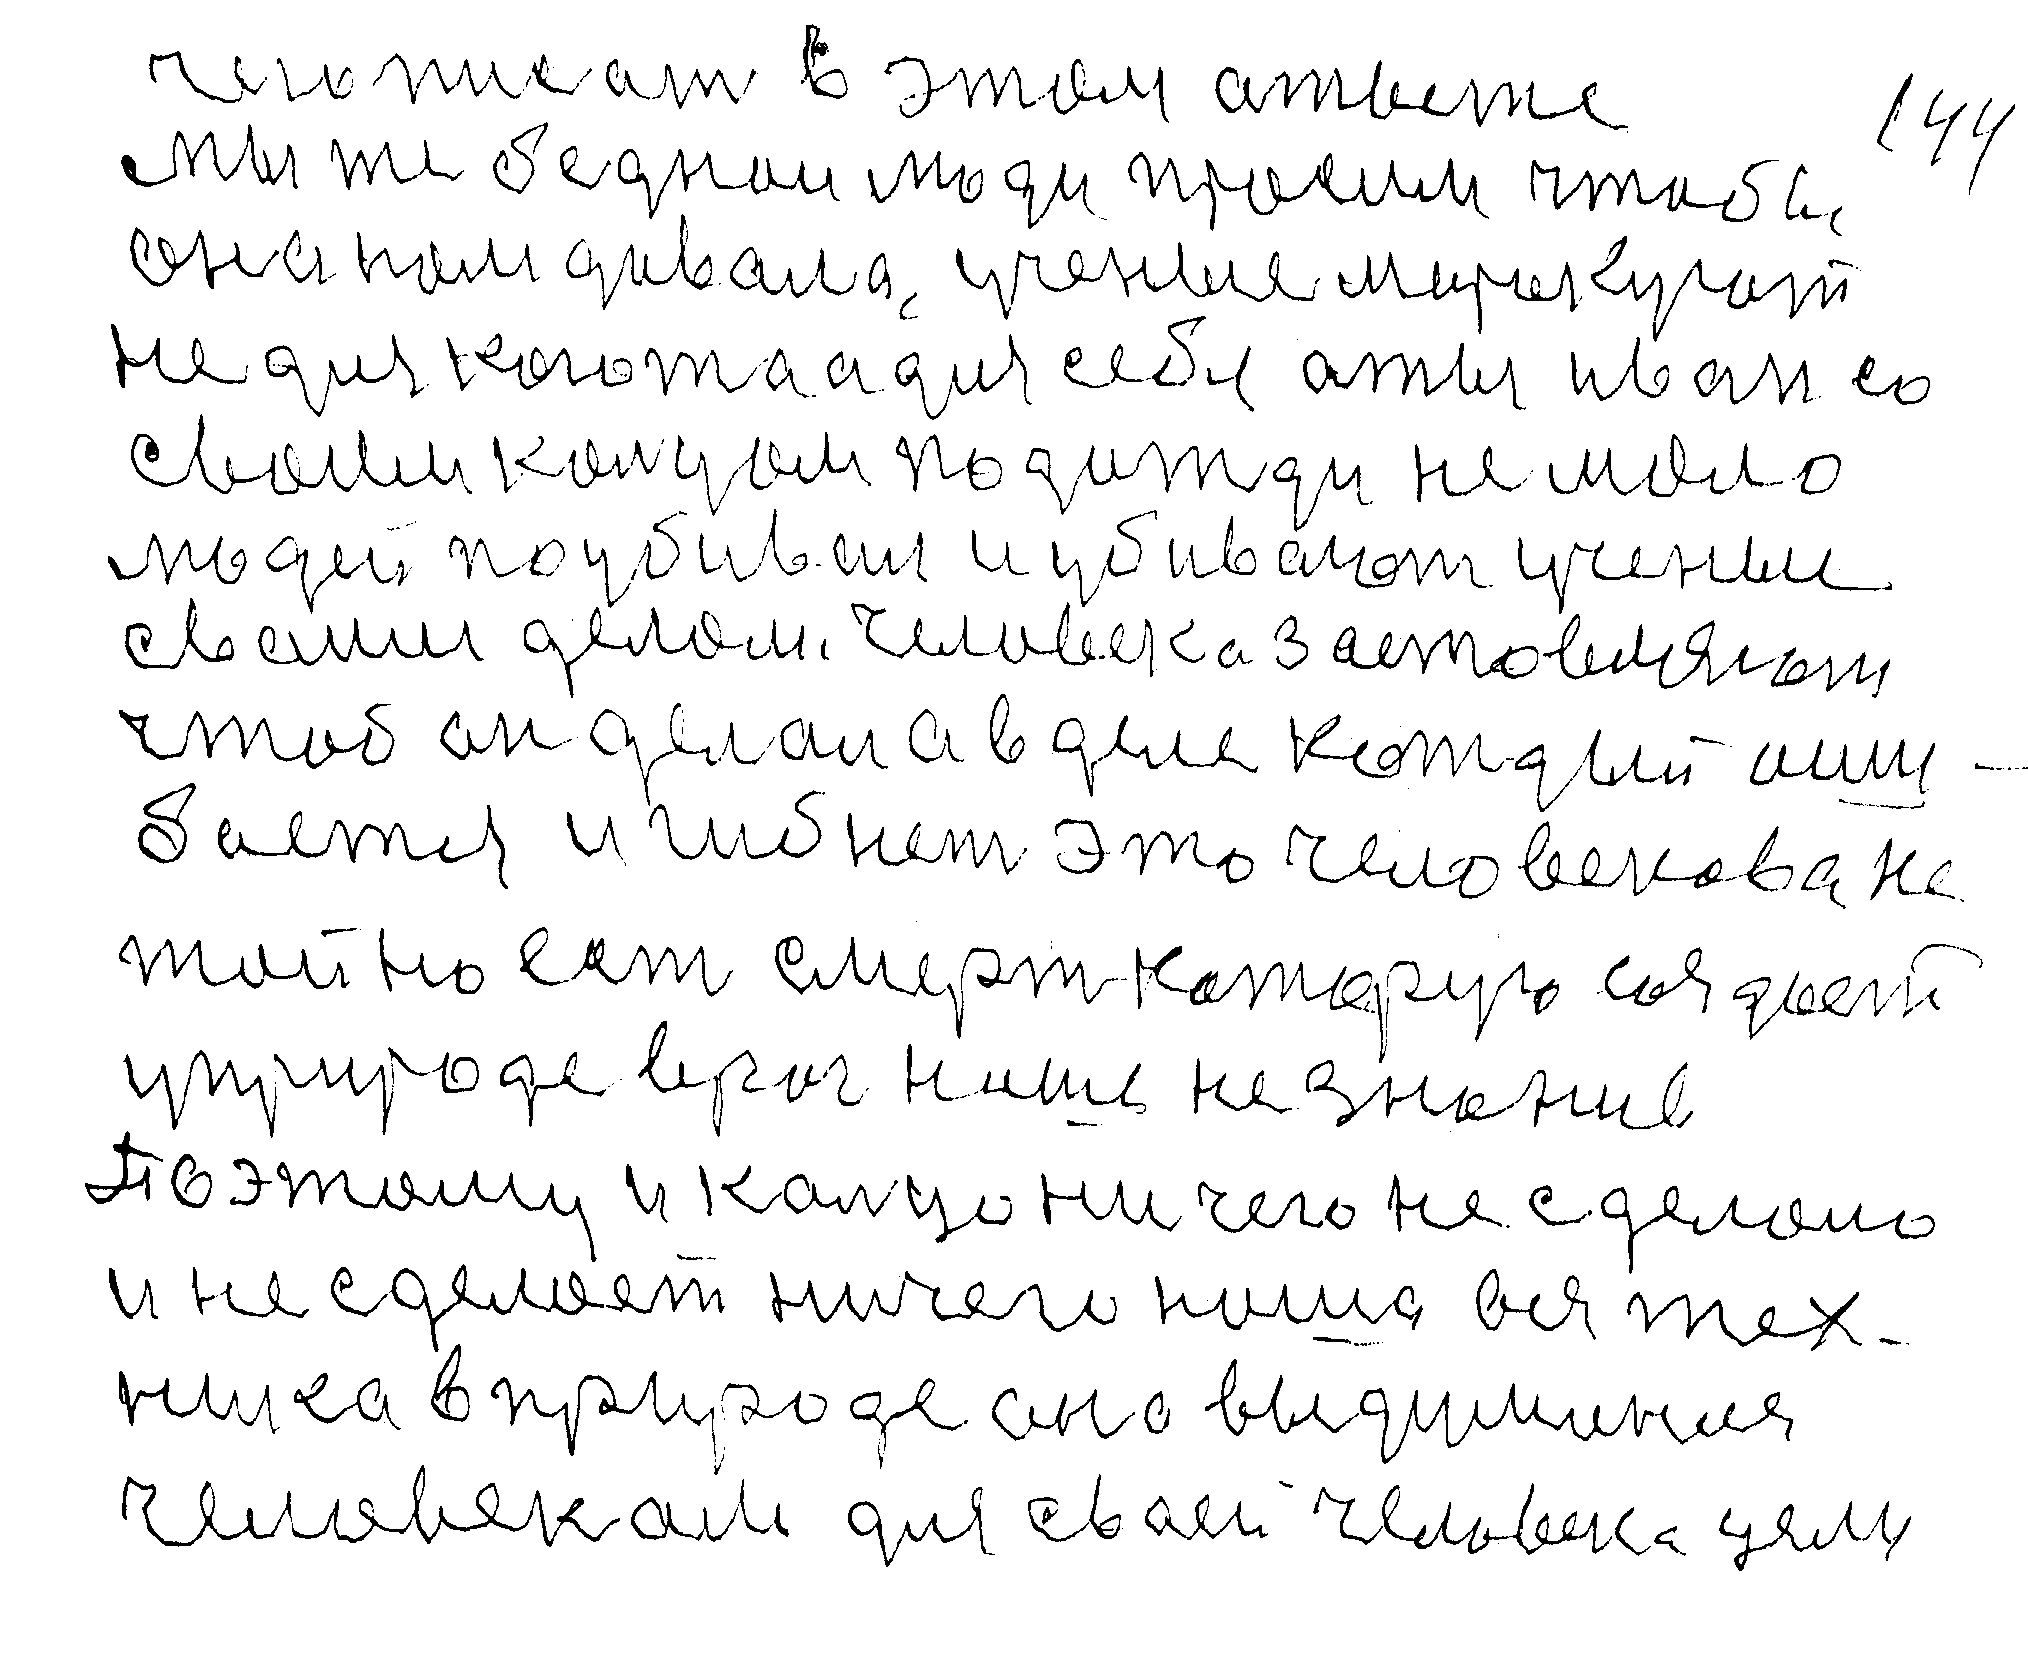 чего писат в этом атвете
144
мы же бедной люди просим чтобы
она нам давала, учение маракуют
не для кого та а для себя а ты иван со
своим колцом подажди не мало
людей поубивал и убивают ученые
своим делом. человека заставляют
чтоб он делал а в деле каждый оши-
бается и гибнет это человекова не
тайност смерт которую создает
у природе враг наше незнание
Поэтому и калцо ничего не сделало
и не сделает ничего наша вся тех-
ника в природе она выдуманая
человекам для своей человека цели